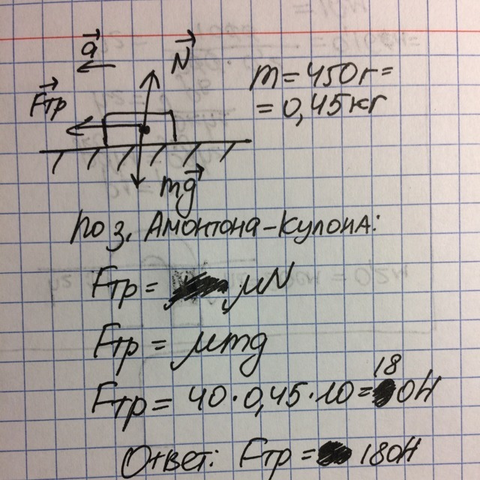 a
N
Fтр
m = 450г =
= 0,45кг
mg
по з. Амонтона-Кулона:
Fтр = μN
Fтр = μmg
Fтр = 40·0,45·10 = 180Н
Ответ: Fтр = 180Н